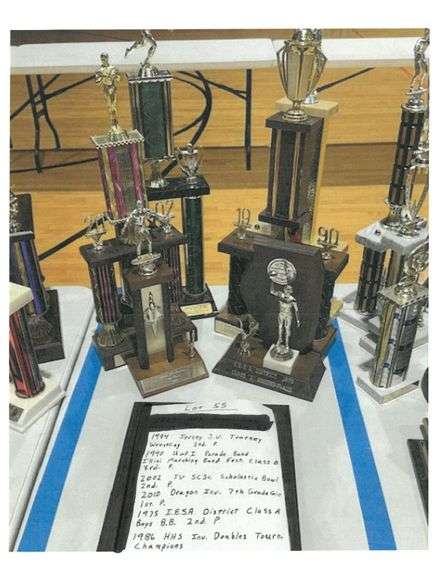 Lot 55
1994 Jersey J.V. Tourney
Wrestling 2nd P.
1990 U of I Parade Band
Illini Marching Band Fest. Class B
3rd. P.
2002 JV SCSC Scholastic Bowl
2nd. P.
2010 Dragon Inv. 7th Grade Girls
1st. P.
1975 I.E.S.A District Class A
Boys B.B. 2nd P
1986 HHS Inv. Doubles Tourn.
Champions
19 90